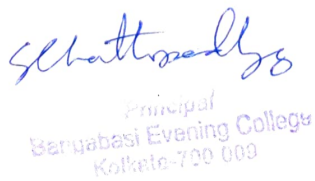 SChattopadhyay
Principal
Bangabasi Evening College
Kolkata-700 009